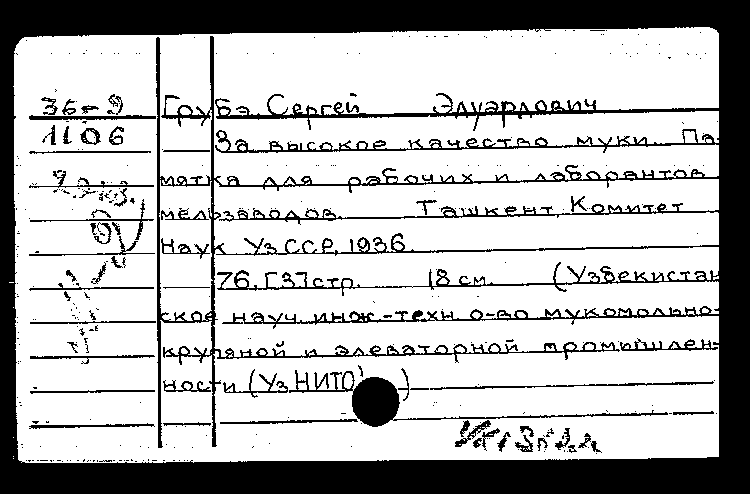 36-9 Грубэ, Сергей Эдуардович
1106 За высокое качество муки. Па-
29 кв. мятка для рабочих и лаборантов
мельзаводов. Ташкент, Комитет
Наук УзССР, 1936.
76, [3] стр. 18 см. (Узбекистан
ское науч. инж.-техн о-во мукомольно-
крупяной и элеваторной промышлен-
ности (УзНИТО)